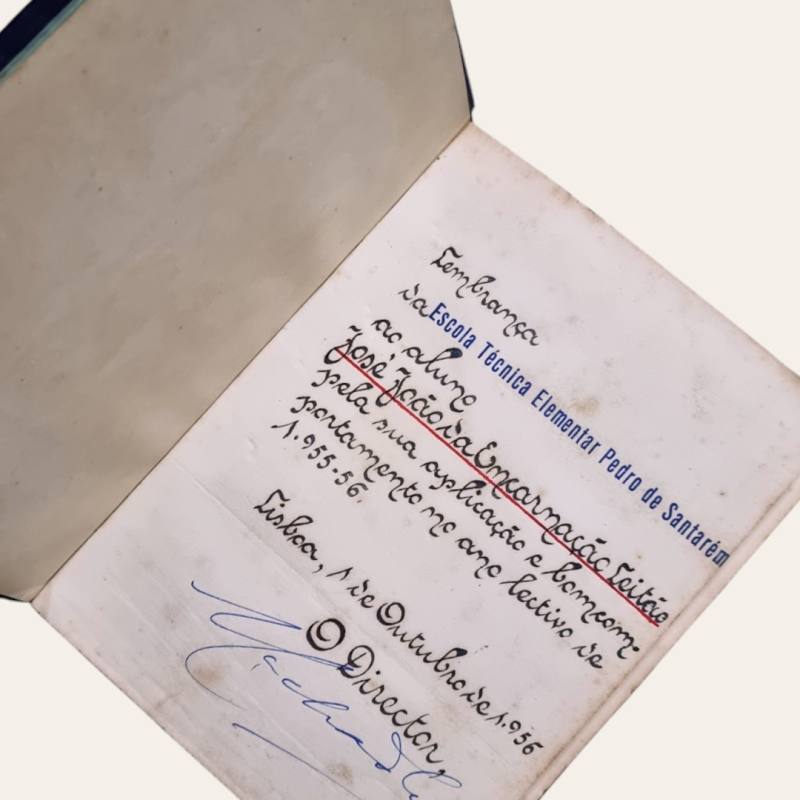 Lembrança
da Escola Técnica Elementar Pedro de Santarém
ao aluno
José João da Encarnação Leitão
pela sua aplicação e bomcom-
portamento no ano lectivo de
1.955-56.
Lisboa, 1 de Outubro de 1.956
O Director,